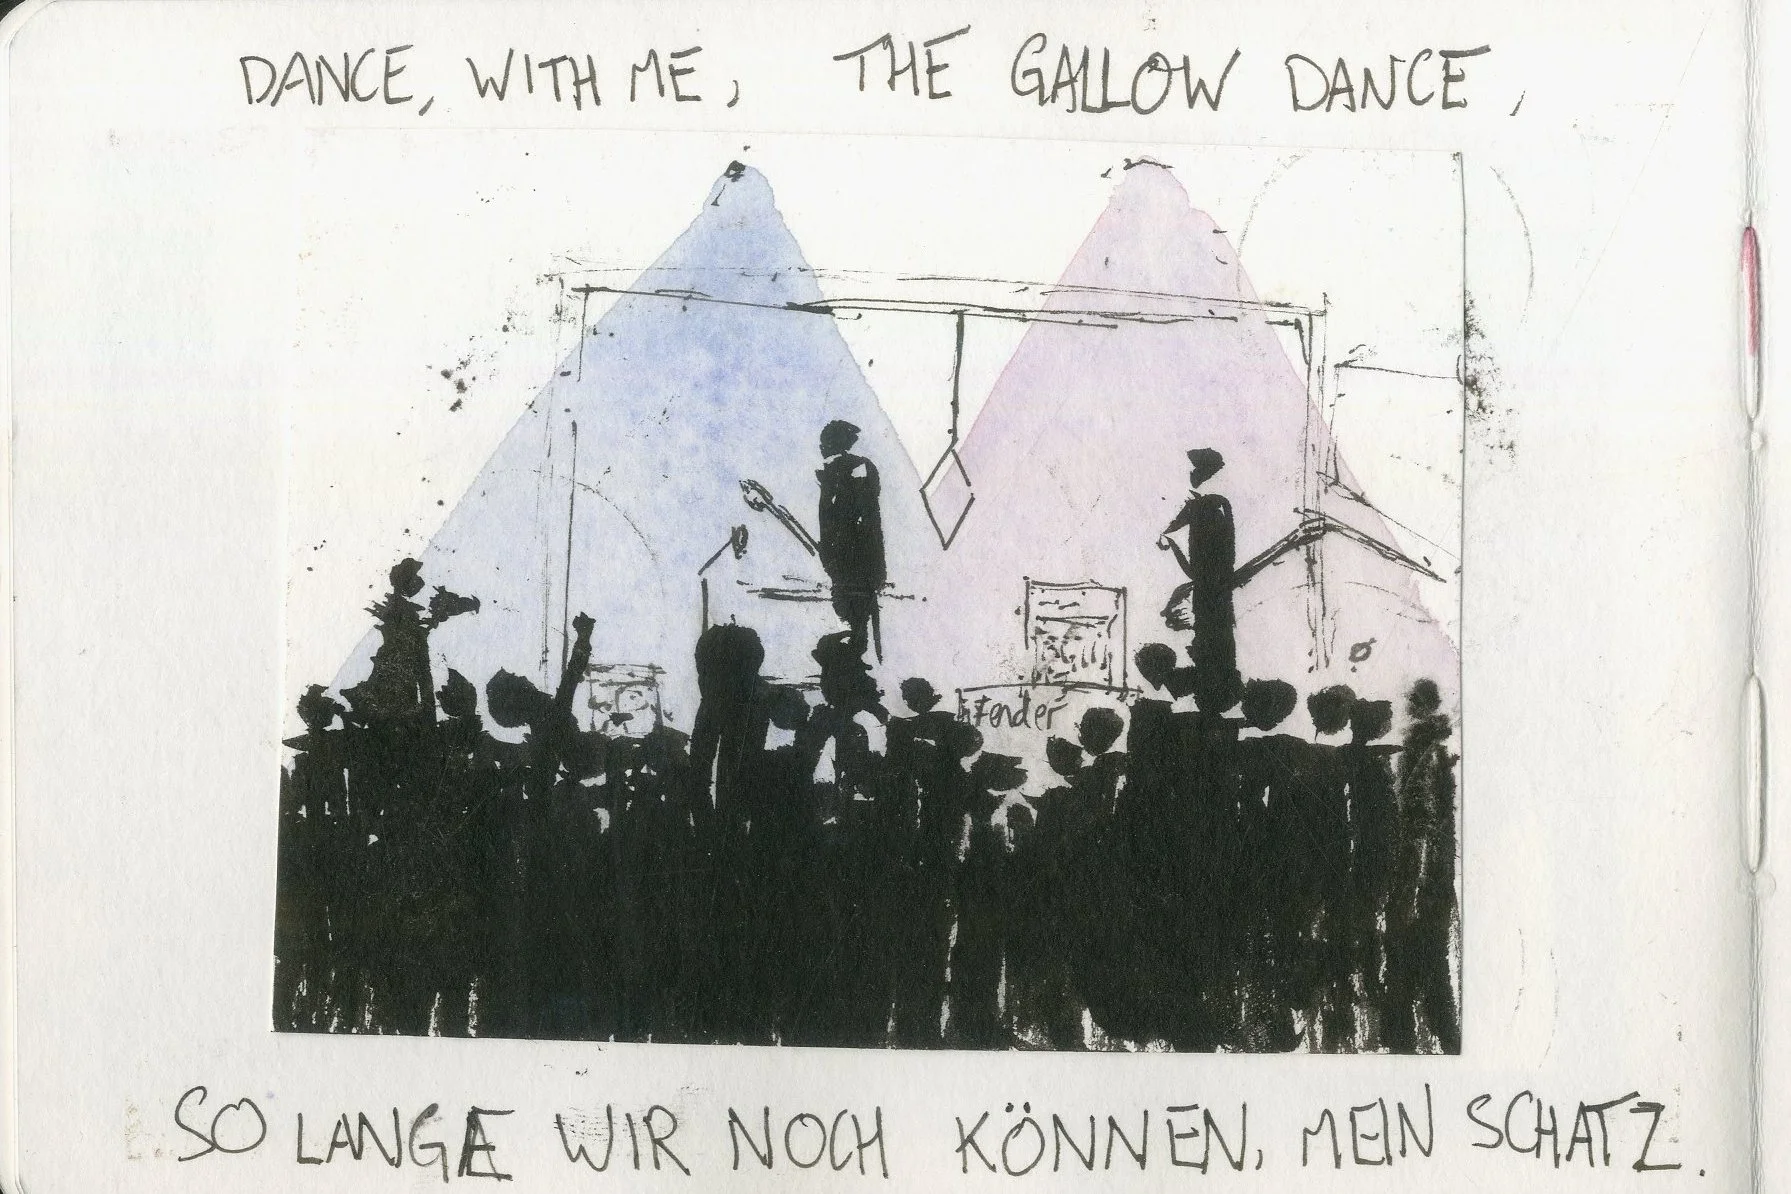 DANCE, WITH ME, THE GALLOW DANCE,
Fender
SO LANGE WIR NOCH KÖNNEN, MEIN SCHATZ.